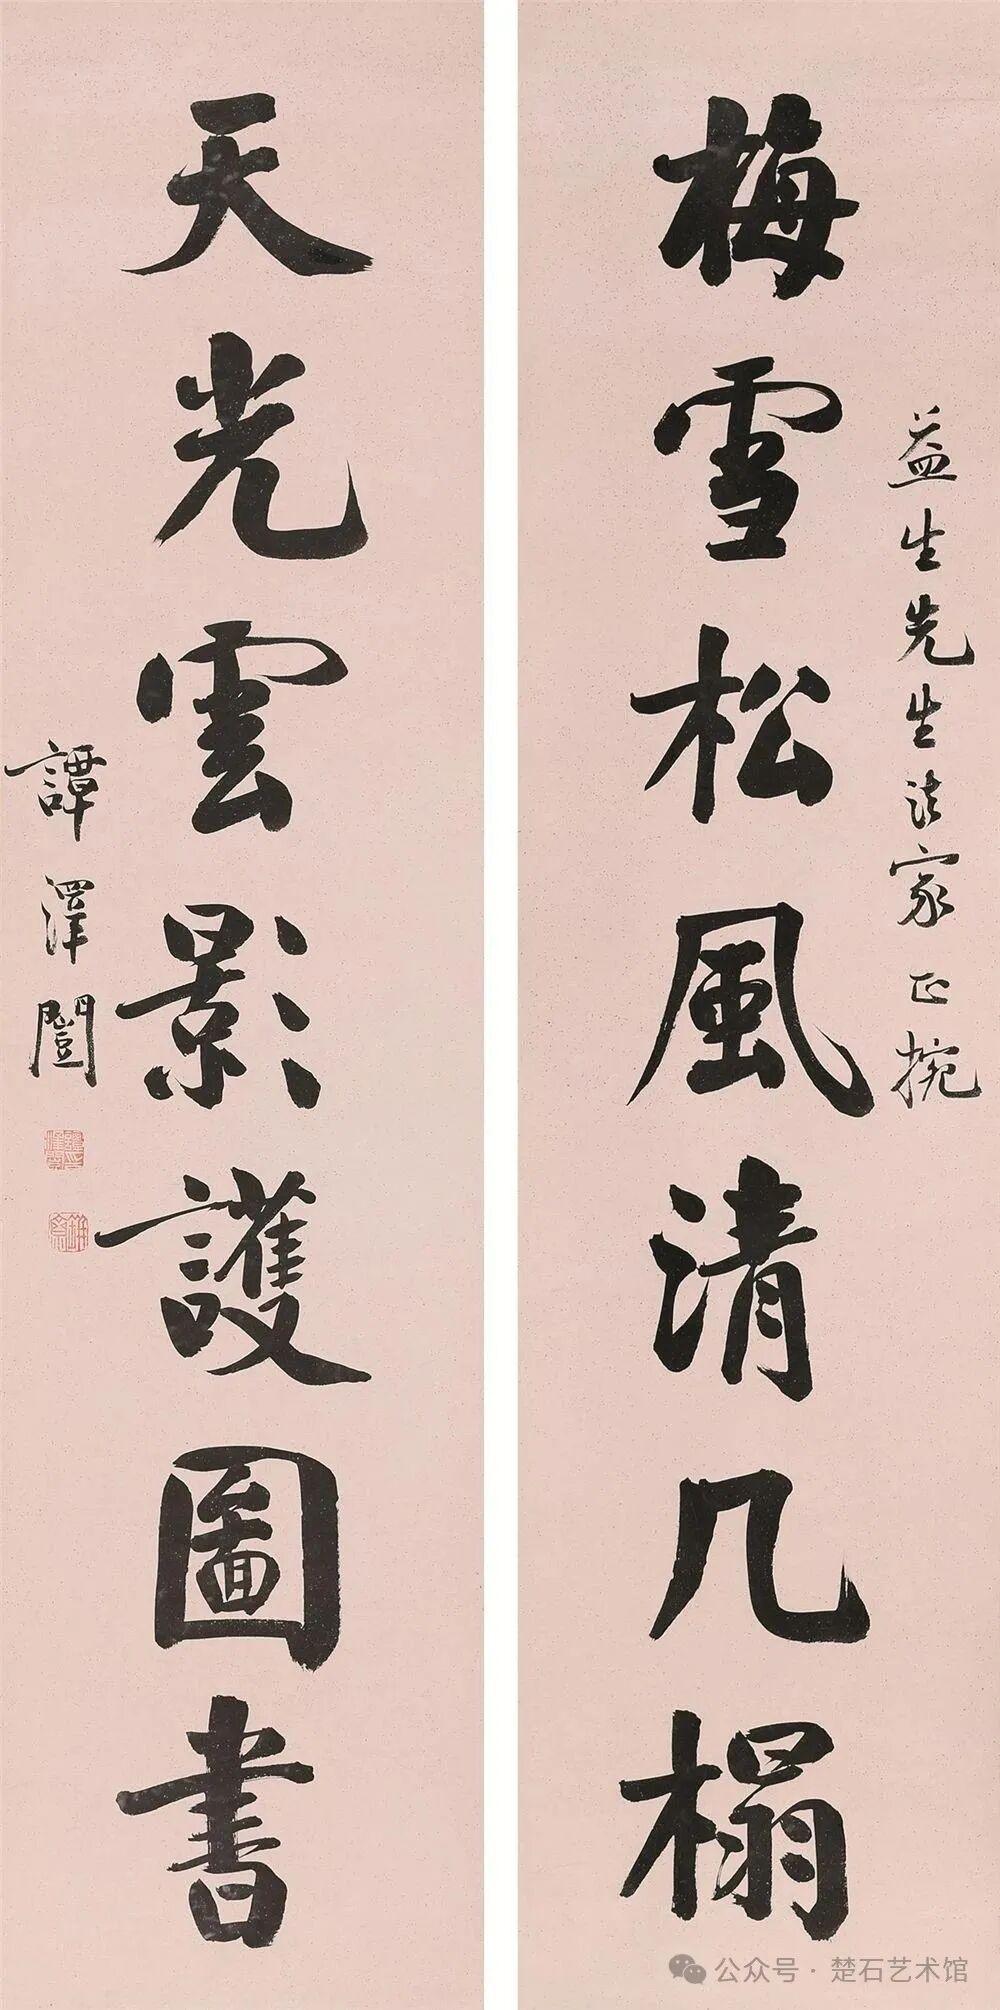 梅雪松風清几榻
益生先生法家正捥
天光雲影護圖書
譚澤闓
公众号 · 楚石艺术馆